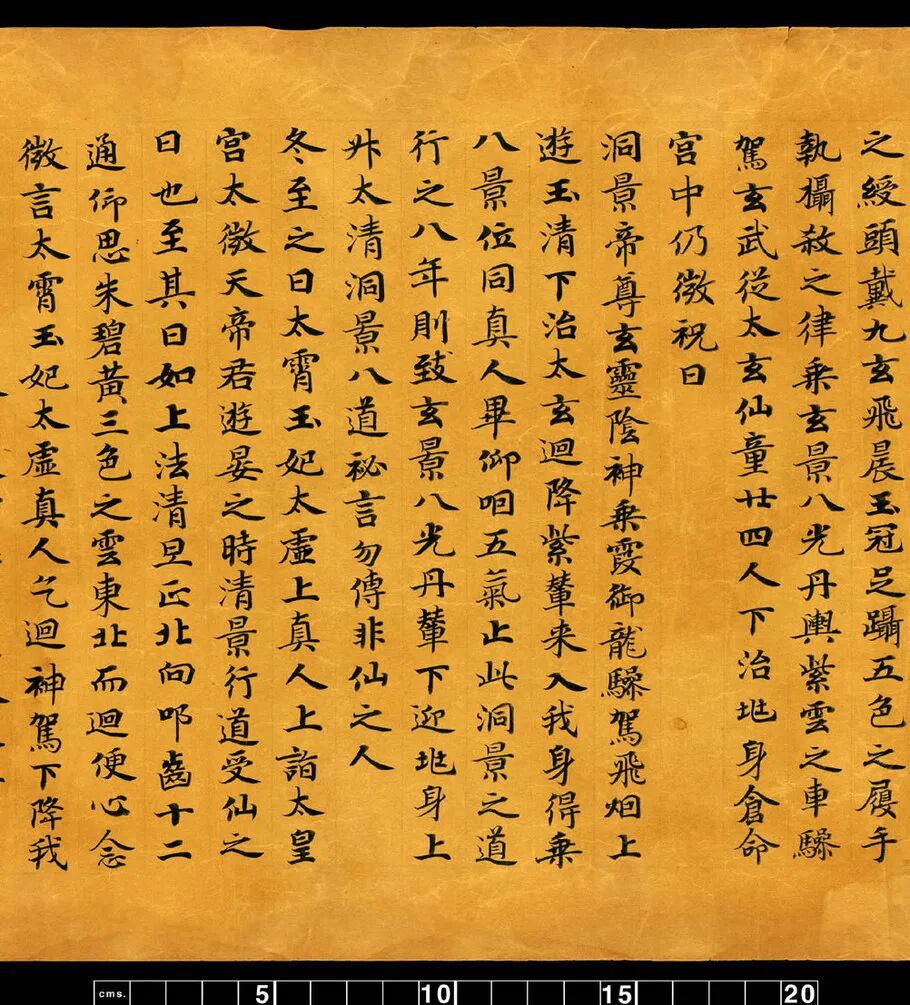 之綬頭戴九玄飛晨玉冠足躡五色之履手
執攝殺之律乘玄景八光丹輿紫雲之車驂
駕玄武從太玄仙童廿四人下治兆身倉命
宮中仍微祝曰
洞景帝尊玄靈陰神乘霞御龍驂駕飛烟上
遊玉清下治太玄迴降紫輦来入我身得乘
八景位同真人畢仰咽五氣止此洞景之道
行之八年則致玄景八光丹輦下迎兆身上
升太清洞景八道祕言勿傳非仙之人
冬至之日太霄玉妃太虛上真人上詣太皇
宮太微天帝君遊宴之時清景行道受仙之
日也至其日如上法清旦正北向叩齒十二
通仰思朱碧黃三色之雲東北而迴便心念
微言太霄玉妃太虛真人乞迴神駕下降我
cms. 5 10 15 20